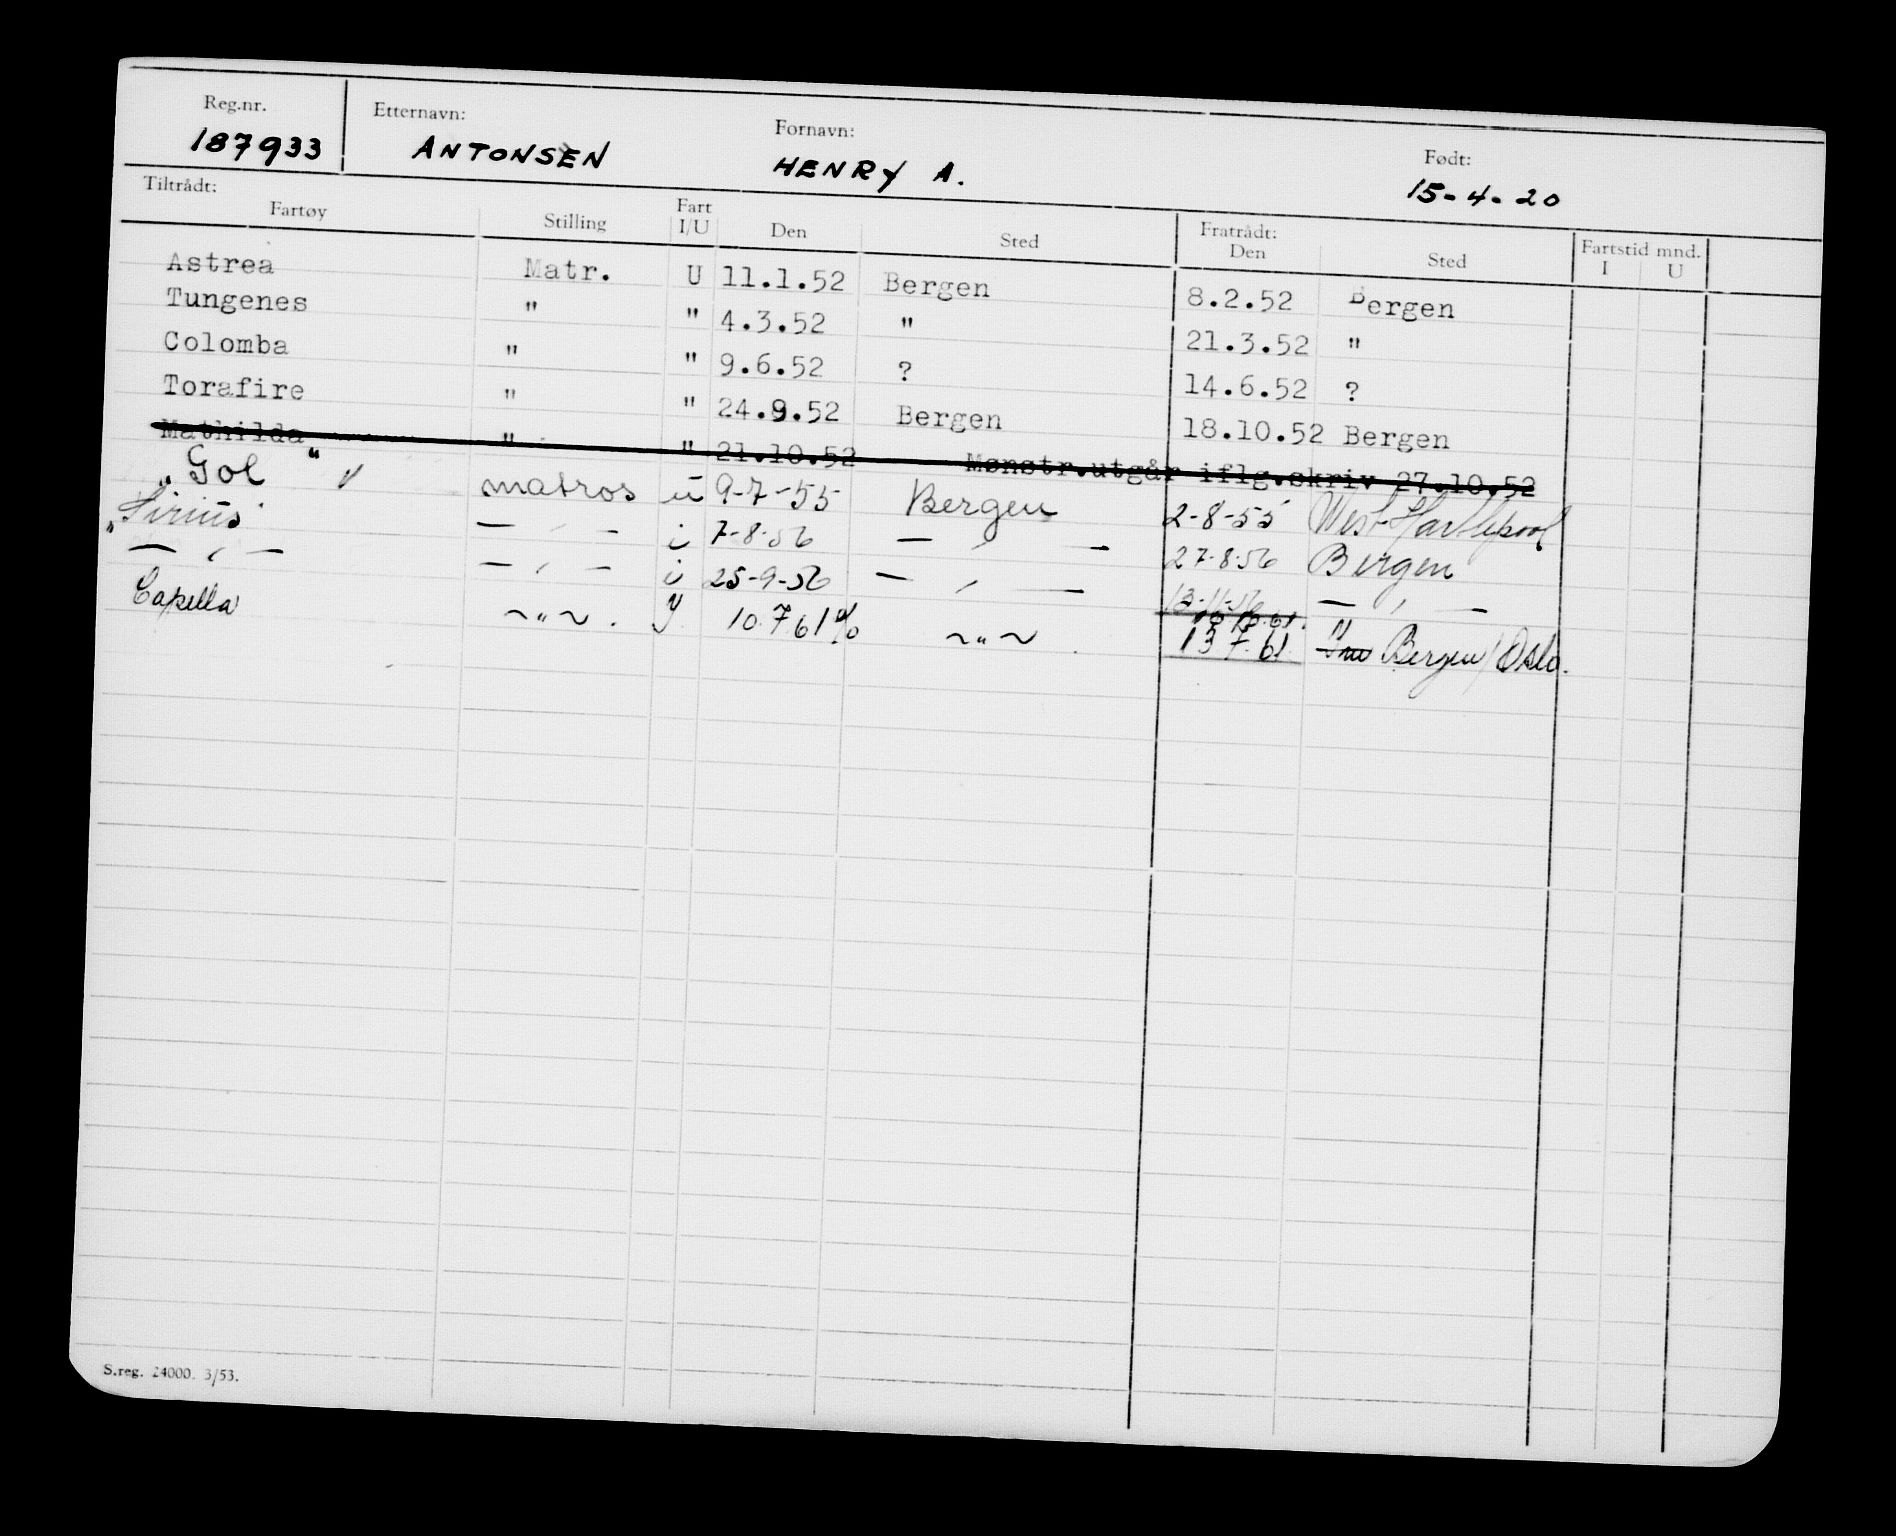 Reg.nr. Etternavn: Fornavn: Født:
187933 ANTONSEN HENRY A. 15-4-20
Tiltrådt: Fratrådt:
Fartøy Stilling Fart I/U Den Sted Den Sted Fartstid mnd. I U
Astrea Matr. U 11.1.52 Bergen 8.2.52 Bergen
Tungenes " " 4.3.52 " 21.3.52 "
Colomba " " 9.6.52 ? 14.6.52 ?
Torafire " " 24.9.52 Bergen 18.10.52 Bergen
Mathilda " " 21.10.52 Mønstr.utgår iflg.skriv 27.10.52
"Gol" V matros u 9-7-55 Bergen 2-8-55 West-Hartlepool
"Sirius" — " — i 7-8-56 — " — 27-8-56 Bergen
— " — — " — i 25-9-56 — " — 13-11-56 — " —
Capella ~ " ~ . 10.7.61 % ~ " ~ 13 7. 61. Bergen/Oslo.
S.reg. 24000. 3/53.